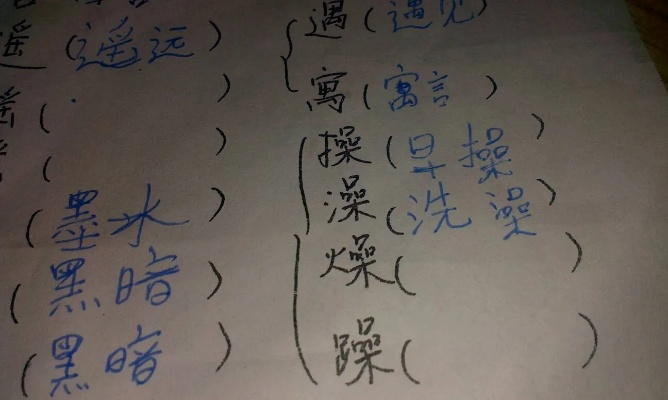 遥(遥远)
{遇(遇见)
(      )
寓(寓言)
(      )
操(早操)
(墨水)
澡(洗澡)
(黑暗)
燥(      )
(黑暗)
躁(      )